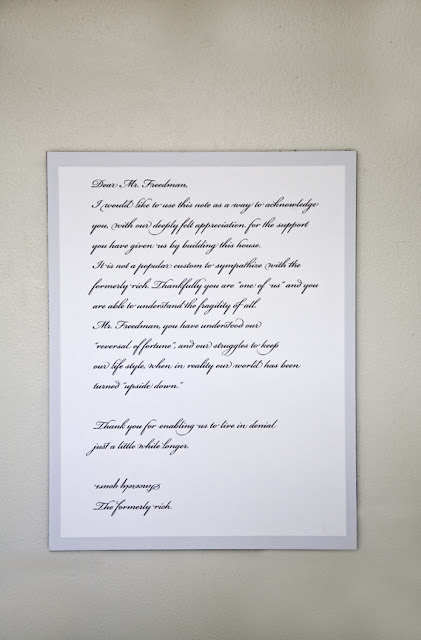 Dear Mr. Freedman,
I would like to use this note as a way to acknowledge
you, with our deeply felt appreciation for the support
you have given us by building this house.
It is not a popular custom to sympathize with the
formerly rich. Thankfully you are "one of us" and you
are able to understand the fragility of all.
Mr. Freedman, you have understood our
"reversal of fortune", and our struggles to keep
our life style, when in reality our world has been
turned "upside down."
Thank you for enabling us to live in denial
just a little while longer.
Sincerely yours
The formerly rich.